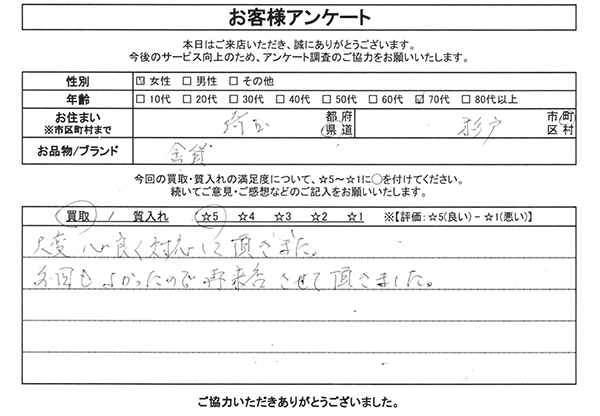 お客様アンケート
本日はご来店いただき、誠にありがとうございます。
今後のサービス向上のため、アンケート調査のご協力をお願いいたします。
性別 ☑ 女性 □ 男性 □ その他
年齢 □ 10代 □ 20代 □ 30代 □ 40代 □ 50代 □ 60代 ☑ 70代 □ 80代以上
お住まい ※市区町村まで 埼玉 都 府 県 道 杉戸 市 町 区 村
お品物/ブランド 金貨
今回の買取・質入れの満足度について、☆5~☆1に○を付けてください。
続いてご意見・ご感想などのご記入をお願いいたします。
買取 / 質入れ ☆5 ☆4 ☆3 ☆2 ☆1 ※【評価:☆5(良い)-☆1(悪い)】
大変 心良く対応して頂きました。
前回もよかったので再来店させて頂きました。
ご協力いただきありがとうございました。